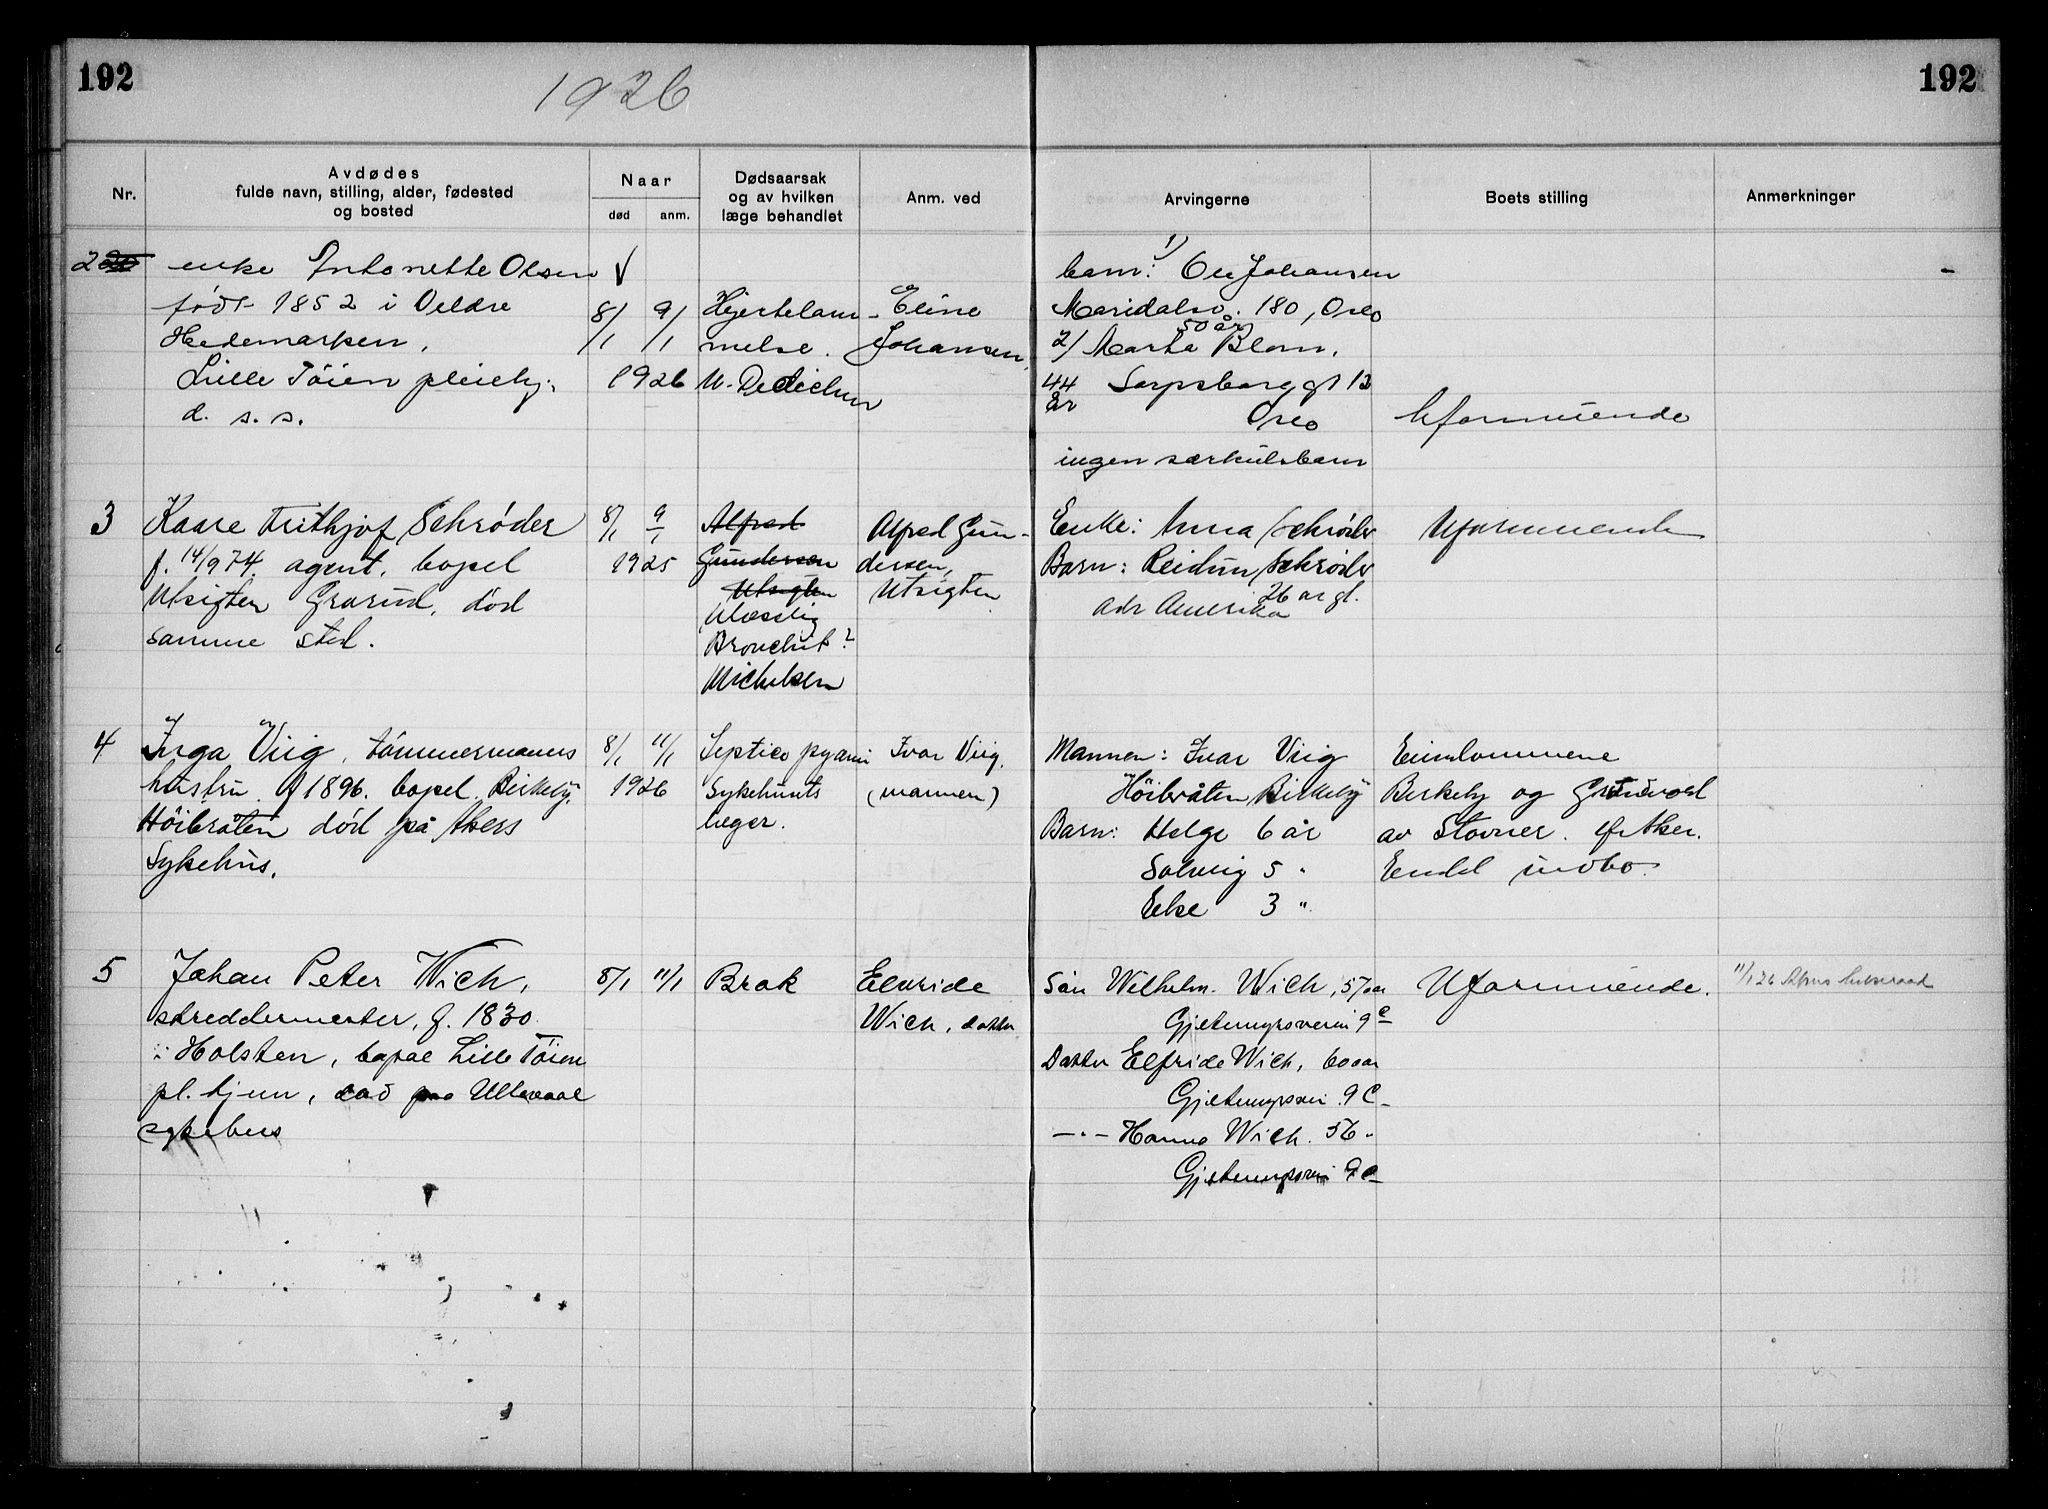 192
1926
192
Nr.
Avdødes
fulde navn, stilling, alder, fødested
og bosted
Naar
død
anm.
Dødsaarsak
og av hvilken
læge behandlet
Anm. ved
Arvingerne
Boets stilling
Anmerkninger
2
enke Antonette Olsen
født 1852 i Veldre
Hedemarken,
Lille Tøien pleiehj.
d. s. s.
8/1 9/1
1926
Hjertelam-
melse.
Eline
Johansen,
barn: 1/ Johansen
Maridalsv. 180, Oslo
50 år
2/ Marta Blom,
44 Sarpsborg gt 13
år
Oslo
ingen særkulsbarn
Uformuende
3
Kaare Frithjof Schrøder
f. 14/9 74. agent, bopel
Utsigten Grorud, død
samme sted.
8/1 9/1
1925
Alfred
Gundersen
Utsigten
Uloeslig
Bronchit?
Michelsen
Alfred Gun-
dersen,
Utsigten
Enke: Anna Schrøder
Barn: Reidun Schrøder
26 år gl.
adr Amerika
Uformuende
4
Inga Viig, tömmermanns
hustru f 1896. bopel Birkeby,
Höibråten død på Akers
Sykehus.
8/1 11/1
1926
Septico pyämi
Sykehusets
læger.
Ivar Viig.
(mannen)
Mannen: Ivar Viig
Höibråten Birkeby
Barn: Helge 6 år
Solveig 5 "
Else 3 "
Eiendommene
Birkeby og Grünvold
av Stovner. Aker.
Endel indbo.
5
Johan Peter Wich,
skreddermester, f. 1830
i Holsten, bopæl Lille Tøien
pl. hjem, død paa Ullevaal
sykehus
8/1 11/1
Brok
Elvride
Wich, datter
Søn Wilhelm Wich, 57 aar
Gjetemyrsveien 9 c
Datter Elfride Wich, 60 aar
Gjetemyrsvei 9 C
— " — Hanna Wich. 56 "
Gjetemyrsvei 9 c
Uformuende.
11/1 26